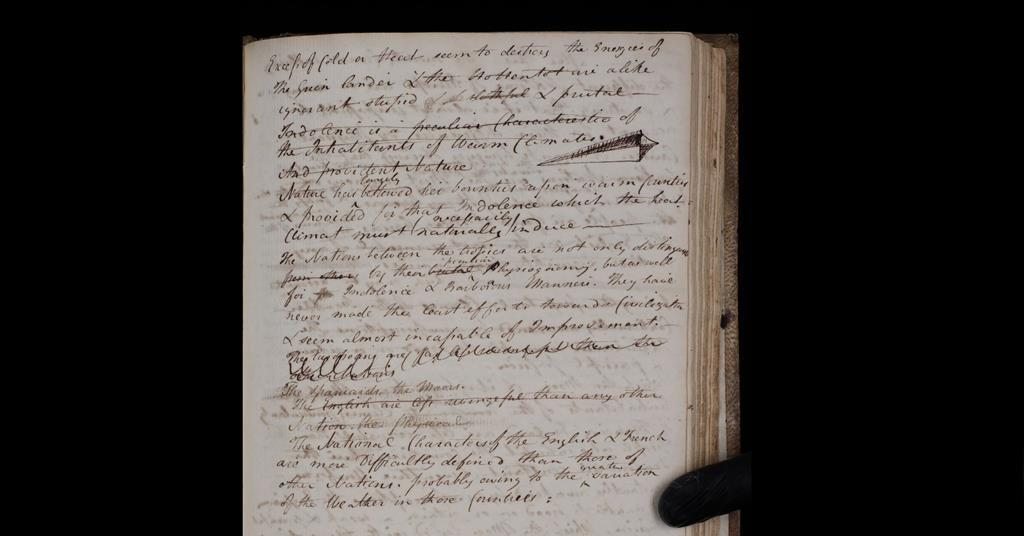 Excess of Cold or Heat seem to destroy the Energies of
The Green lander & the Hottentot are alike
ignorant stupid & slothful & brutal —
Indolence is a peculiar Characteristic of
the Inhabitants of Warm Climates.
And provident Nature
Nature has largely bestowed her bounties upon warm Countries
& provided for that Indolence which the heat
Climat must necessarily naturally induce —
The Nations between the tropics are not only distinguish
from others by their brutal peculiar Physiognomy, but as well
for Indolence & Barbarous Manners. They have
never made the least efforts towards Civilizatn
& seem almost incapable of Improvement.
They less than the
The Spaniards the Moors.
The English are less revengeful than any other
Nation. the Physical
The National Character of the English & French
are more Difficultly defined than those of
other Nations. probably owing to the greater variation
of the Weather in those Countries: